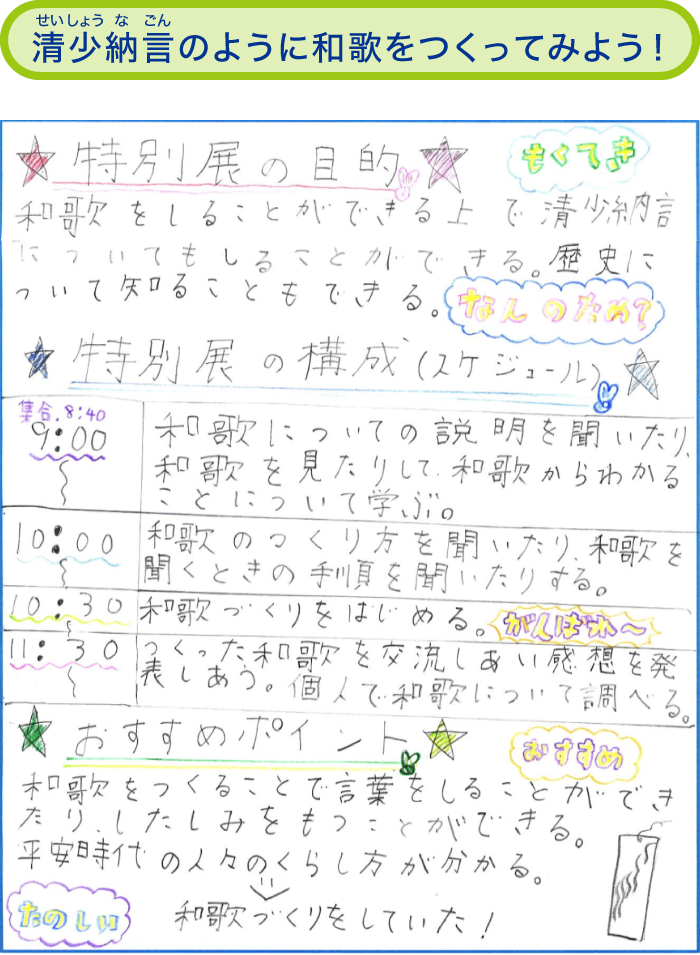 せいしょうなごん
清少納言のように和歌をつくってみよう!
特別展の目的
もくてき
和歌をしることができる上で清少納言
についてもしることができる。歴史に
ついて知ることもできる。
なんのため?
特別展の構成(スケジュール)
集合.8:40
9:00
和歌についての説明を聞いたり、
和歌を見たりして、和歌からわかる
ことについて学ぶ。
10:00
和歌のつくり方を聞いたり、和歌を
聞くときの手順を聞いたりする。
10:30
和歌づくりをはじめる。
がんばれ〜
11:30
つくった和歌を交流しあい感想を発
表しあう。個人で和歌について調べる。
おすすめポイント
おすすめ
和歌をつくることで言葉をしることができ
たり、したしみをもつことができる。
平安時代の人々のくらし方が分かる。
たのしい
和歌づくりをしていた!